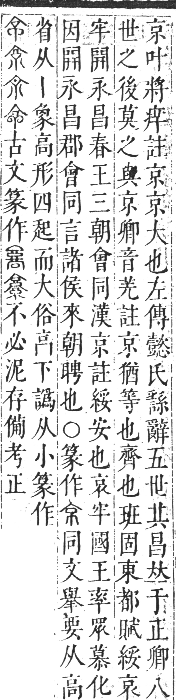 京叶將痒註京京大也左傳懿氏繇辭五世其昌𠀤于正卿八
世之後莫之與京卿音羌註京猶等也齊也班固東都賦綏哀
牢開永昌春王三朝會同漢京註綏安也哀牢國王率眾慕化
因開永昌郡會同言諸侯來朝聘也○篆作同文舉要从高
省从丨象高形四起而大俗咼下譌从小篆作
古文篆作不必泥存僃考正